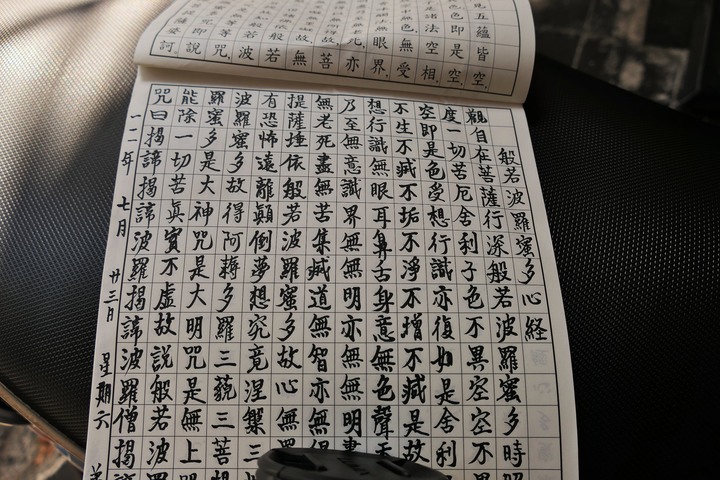 五蘊皆空,
色即是空,
諸法空相,
色,無受
眼界,
亦
菩
無
般若
波
等咒,
即說
訶
般若波羅蜜多心経
觀自在菩薩行深般若波羅蜜多時
度一切苦厄舍利子色不異空空不
空即是色受想行識亦復如是舍利
不生不滅不垢不淨不增不減是故
想行識無眼耳鼻舌身意無色聲
乃至無意識界無無明亦無無明盡
無老死盡無苦集滅道無智亦無
提薩埵依般若波羅蜜多故心無
有恐怖遠離顛倒夢想究竟涅槃三
波羅蜜多故得阿耨多羅三藐三菩
羅蜜多是大神咒是大明咒是無上
能除一切苦真實不虛故說般若波
咒曰揭諦揭諦波羅揭諦波羅僧揭
一二年 七月 廿三日 星期六